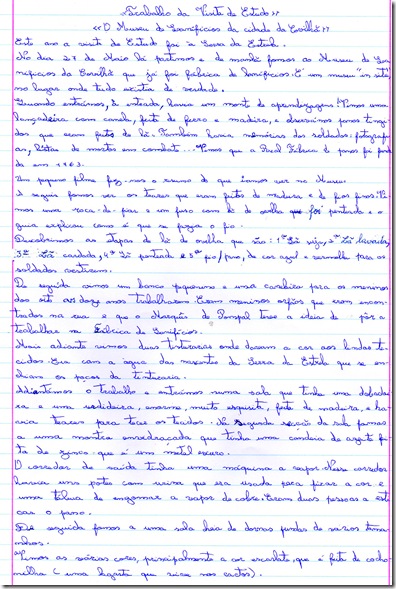 «Trabalho da Visita de Estudo»
«O Museu de Lanifícios da cidade da Covilhã»
Este ano a visita de Estudo foi à Serra da Estrela.
No dia 27 de Maio lá partimos e de manhã fomos ao Museu de La-
nifícios da Covilhã que já foi fábrica de lanifícios. É um museu "in situ"
no lugar onde tudo existia de verdade.
Quando entrámos, à entrada, havia um monte de aprendizagens! Vimos uma
lançadeira com canela, feita de ferro e madeira, e observámos panos
que eram feitos de lã. Também havia memórias dos soldados: fotografi-
as, listas de mortos em combate... Vimos que a Real Fábrica de panos foi funda-
da em 1763.
Um pequeno filme fez-nos o resumo do que íamos ver no Museu.
A seguir fomos ver os teares que eram feitos de madeira e de fios finos. Vi-
mos uma roca de fiar e um fuso com lã de ovelha que foi penteada e o
guia explicou como é que se fazia o fio.
Descobrimos as etapas da lã de ovelha que são: 1ª Lã suja, 2ª Lã lavada,
3ª Lã cardada, 4ª Lã penteada e 5ª fio/pano, da cor azul e vermelha para os
soldados vestirem.
De seguida vimos um banco pequeno e uma cardica para os meninos
dos sete aos doze anos trabalharem. Eram meninos orfãos que eram encon-
trados na rua e que o Marquês de Pombal teve a ideia de pôr a
trabalhar na Fábrica de Lanifícios.
Mais adiante vimos duas tinturarias onde davam a cor aos lindos te-
cidos. Era com a água das nascentes da Serra da Estrela que se en-
chiam os poços da tinturaria.
Adiantámos o trabalho e entrámos numa sala que tinha uma dobadou-
ra e uma urdideira, enorme, muito esquisita, feita de madeira, e ha-
via teares para tecer os tecidos. Na segunda secção da sala fomos
a uma montra envidraçada que tinha uma candeia de azeite fei-
ta de zinco que é um metal escuro.
O corredor de saída tinha uma máquina a vapor. Nesse corredor
havia uns potes com urina que era usada para fixar a cor e
uma tábua de engomar a vapor de cobre. Eram duas pessoas a esti-
car o pano.
De seguida fomos a uma sala cheia de dornas fundas de vários tama-
nhos.
Vimos as várias cores, principalmente a cor escarlate, que é feita de cocho-
nilha (uma lagarta que vive nos cactos).